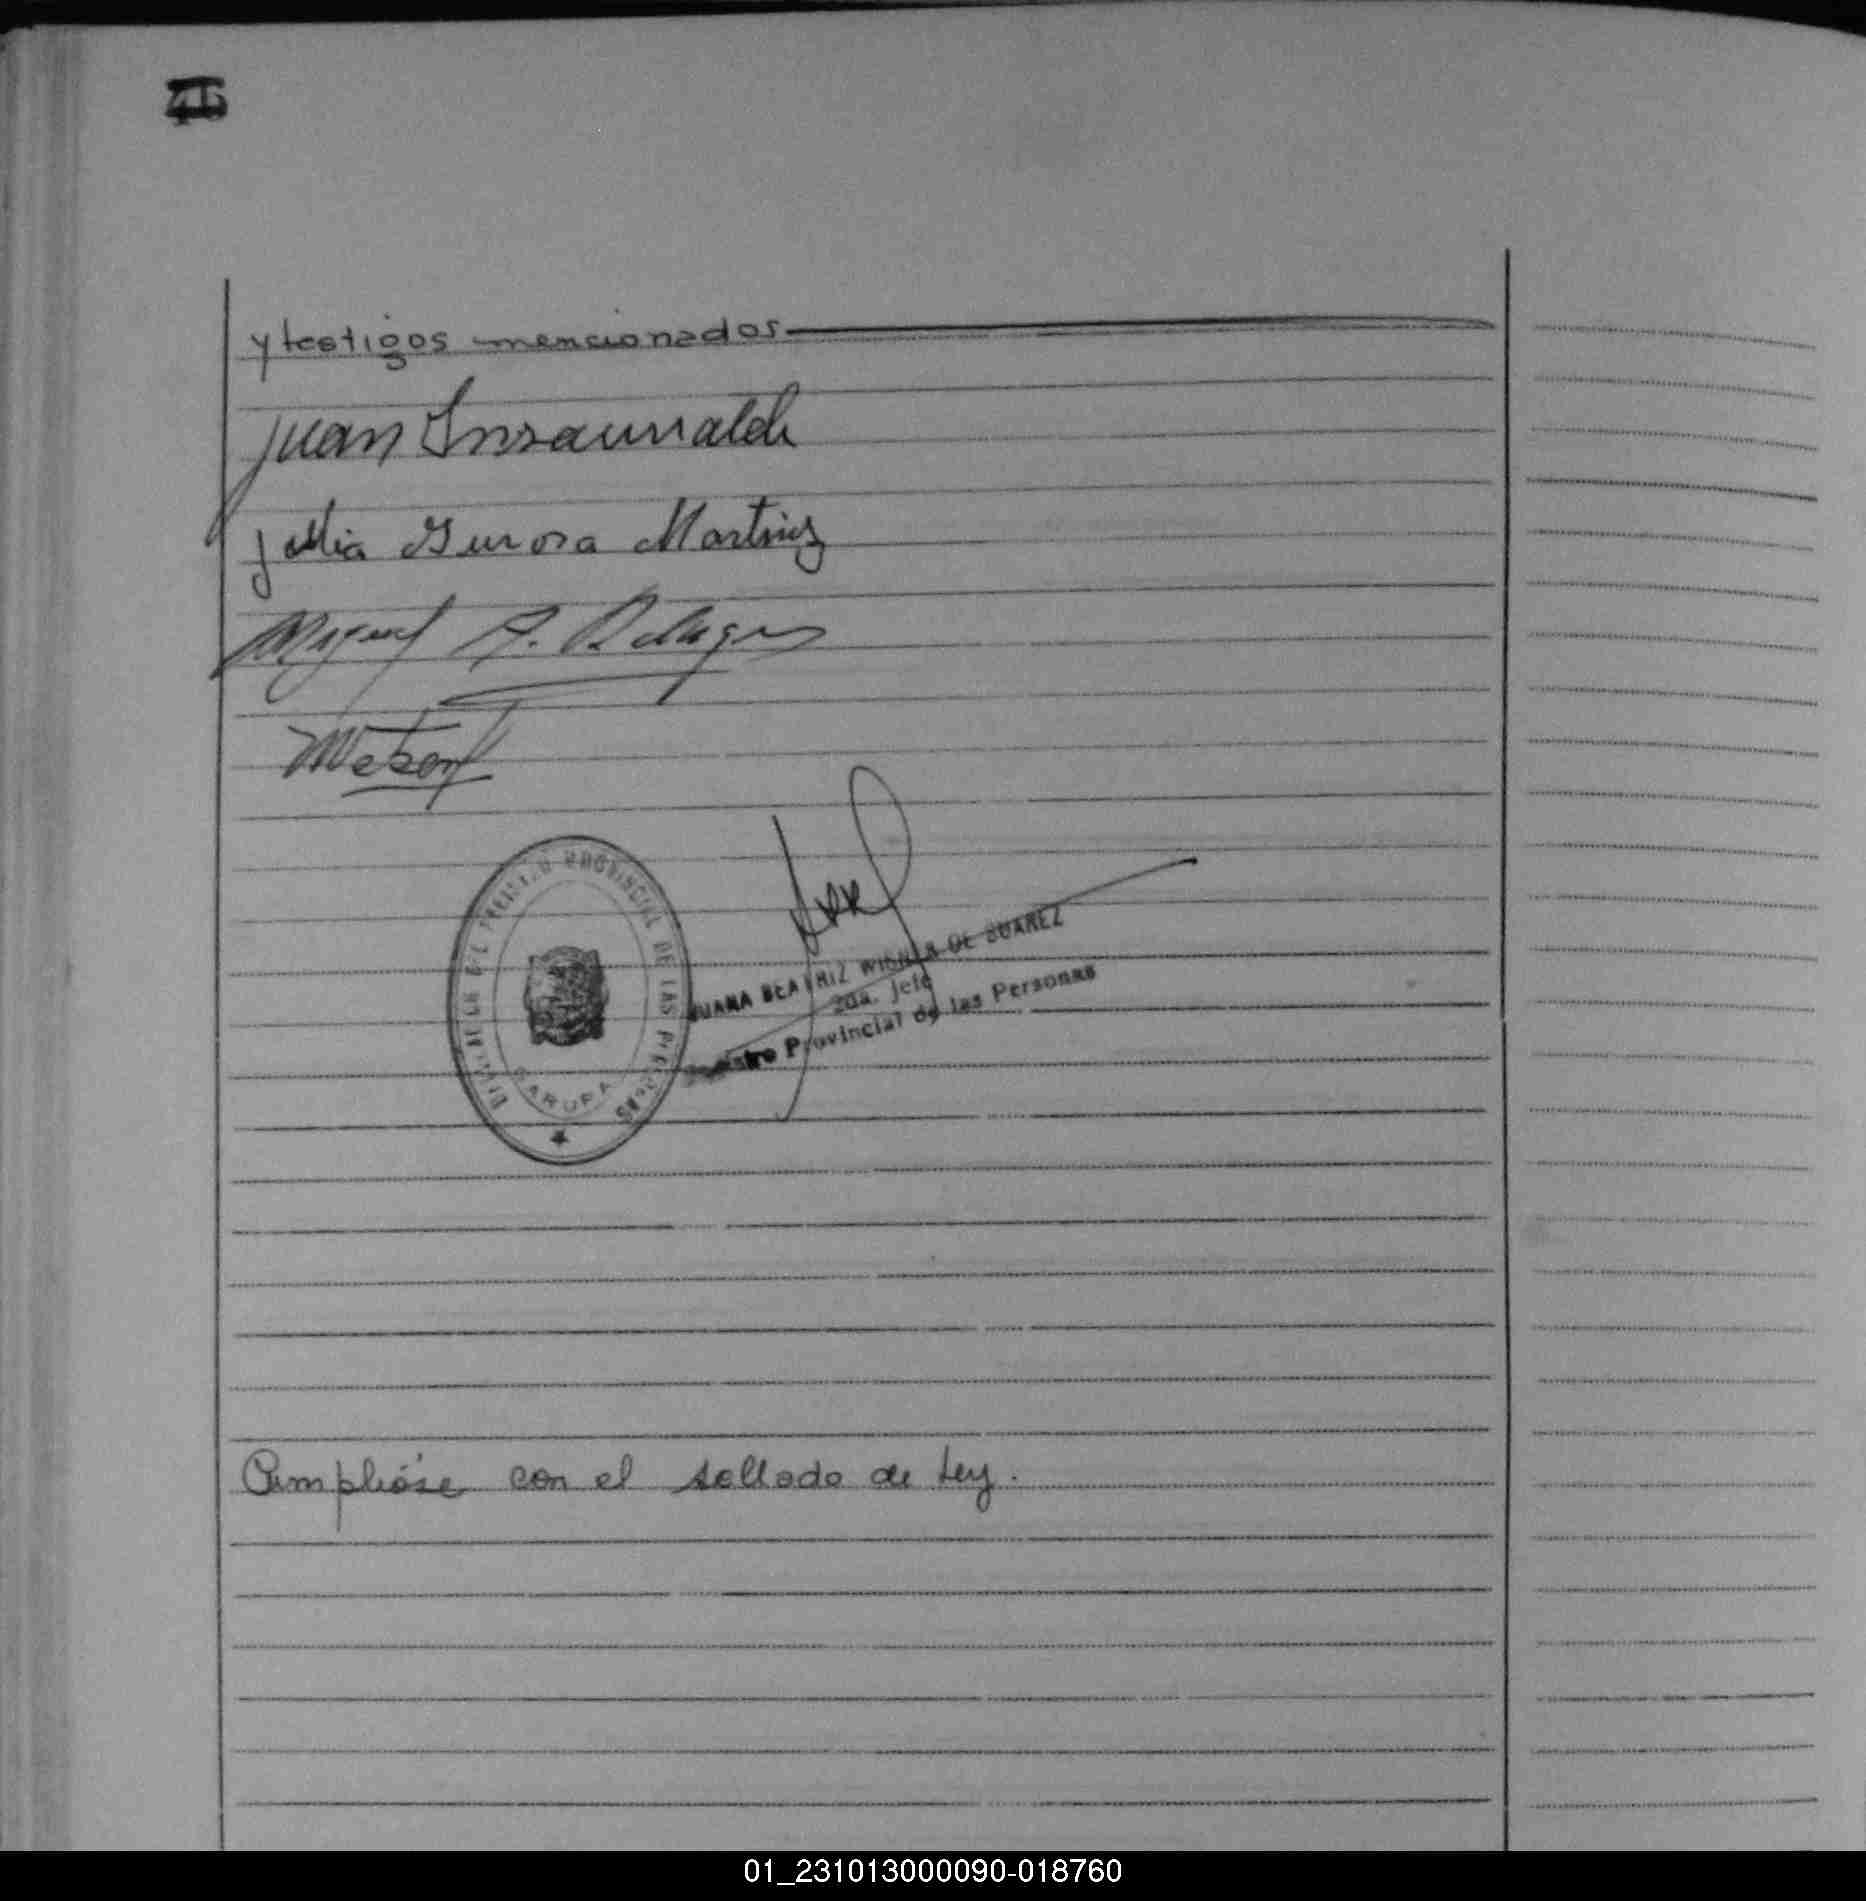 y testigos mencionados
Juan Insaurralde
Julia Aurora Martinez
Miguel A.
DIRECCION DEL REGISTRO PROVINCIAL DE LAS PERSONAS
GARUPA
JUANA BEATRIZ DE SUAREZ
2da. Jefe
Registro Provincial de las Personas
Cumplióse con el sellado de Ley.
01_231013000090-018760